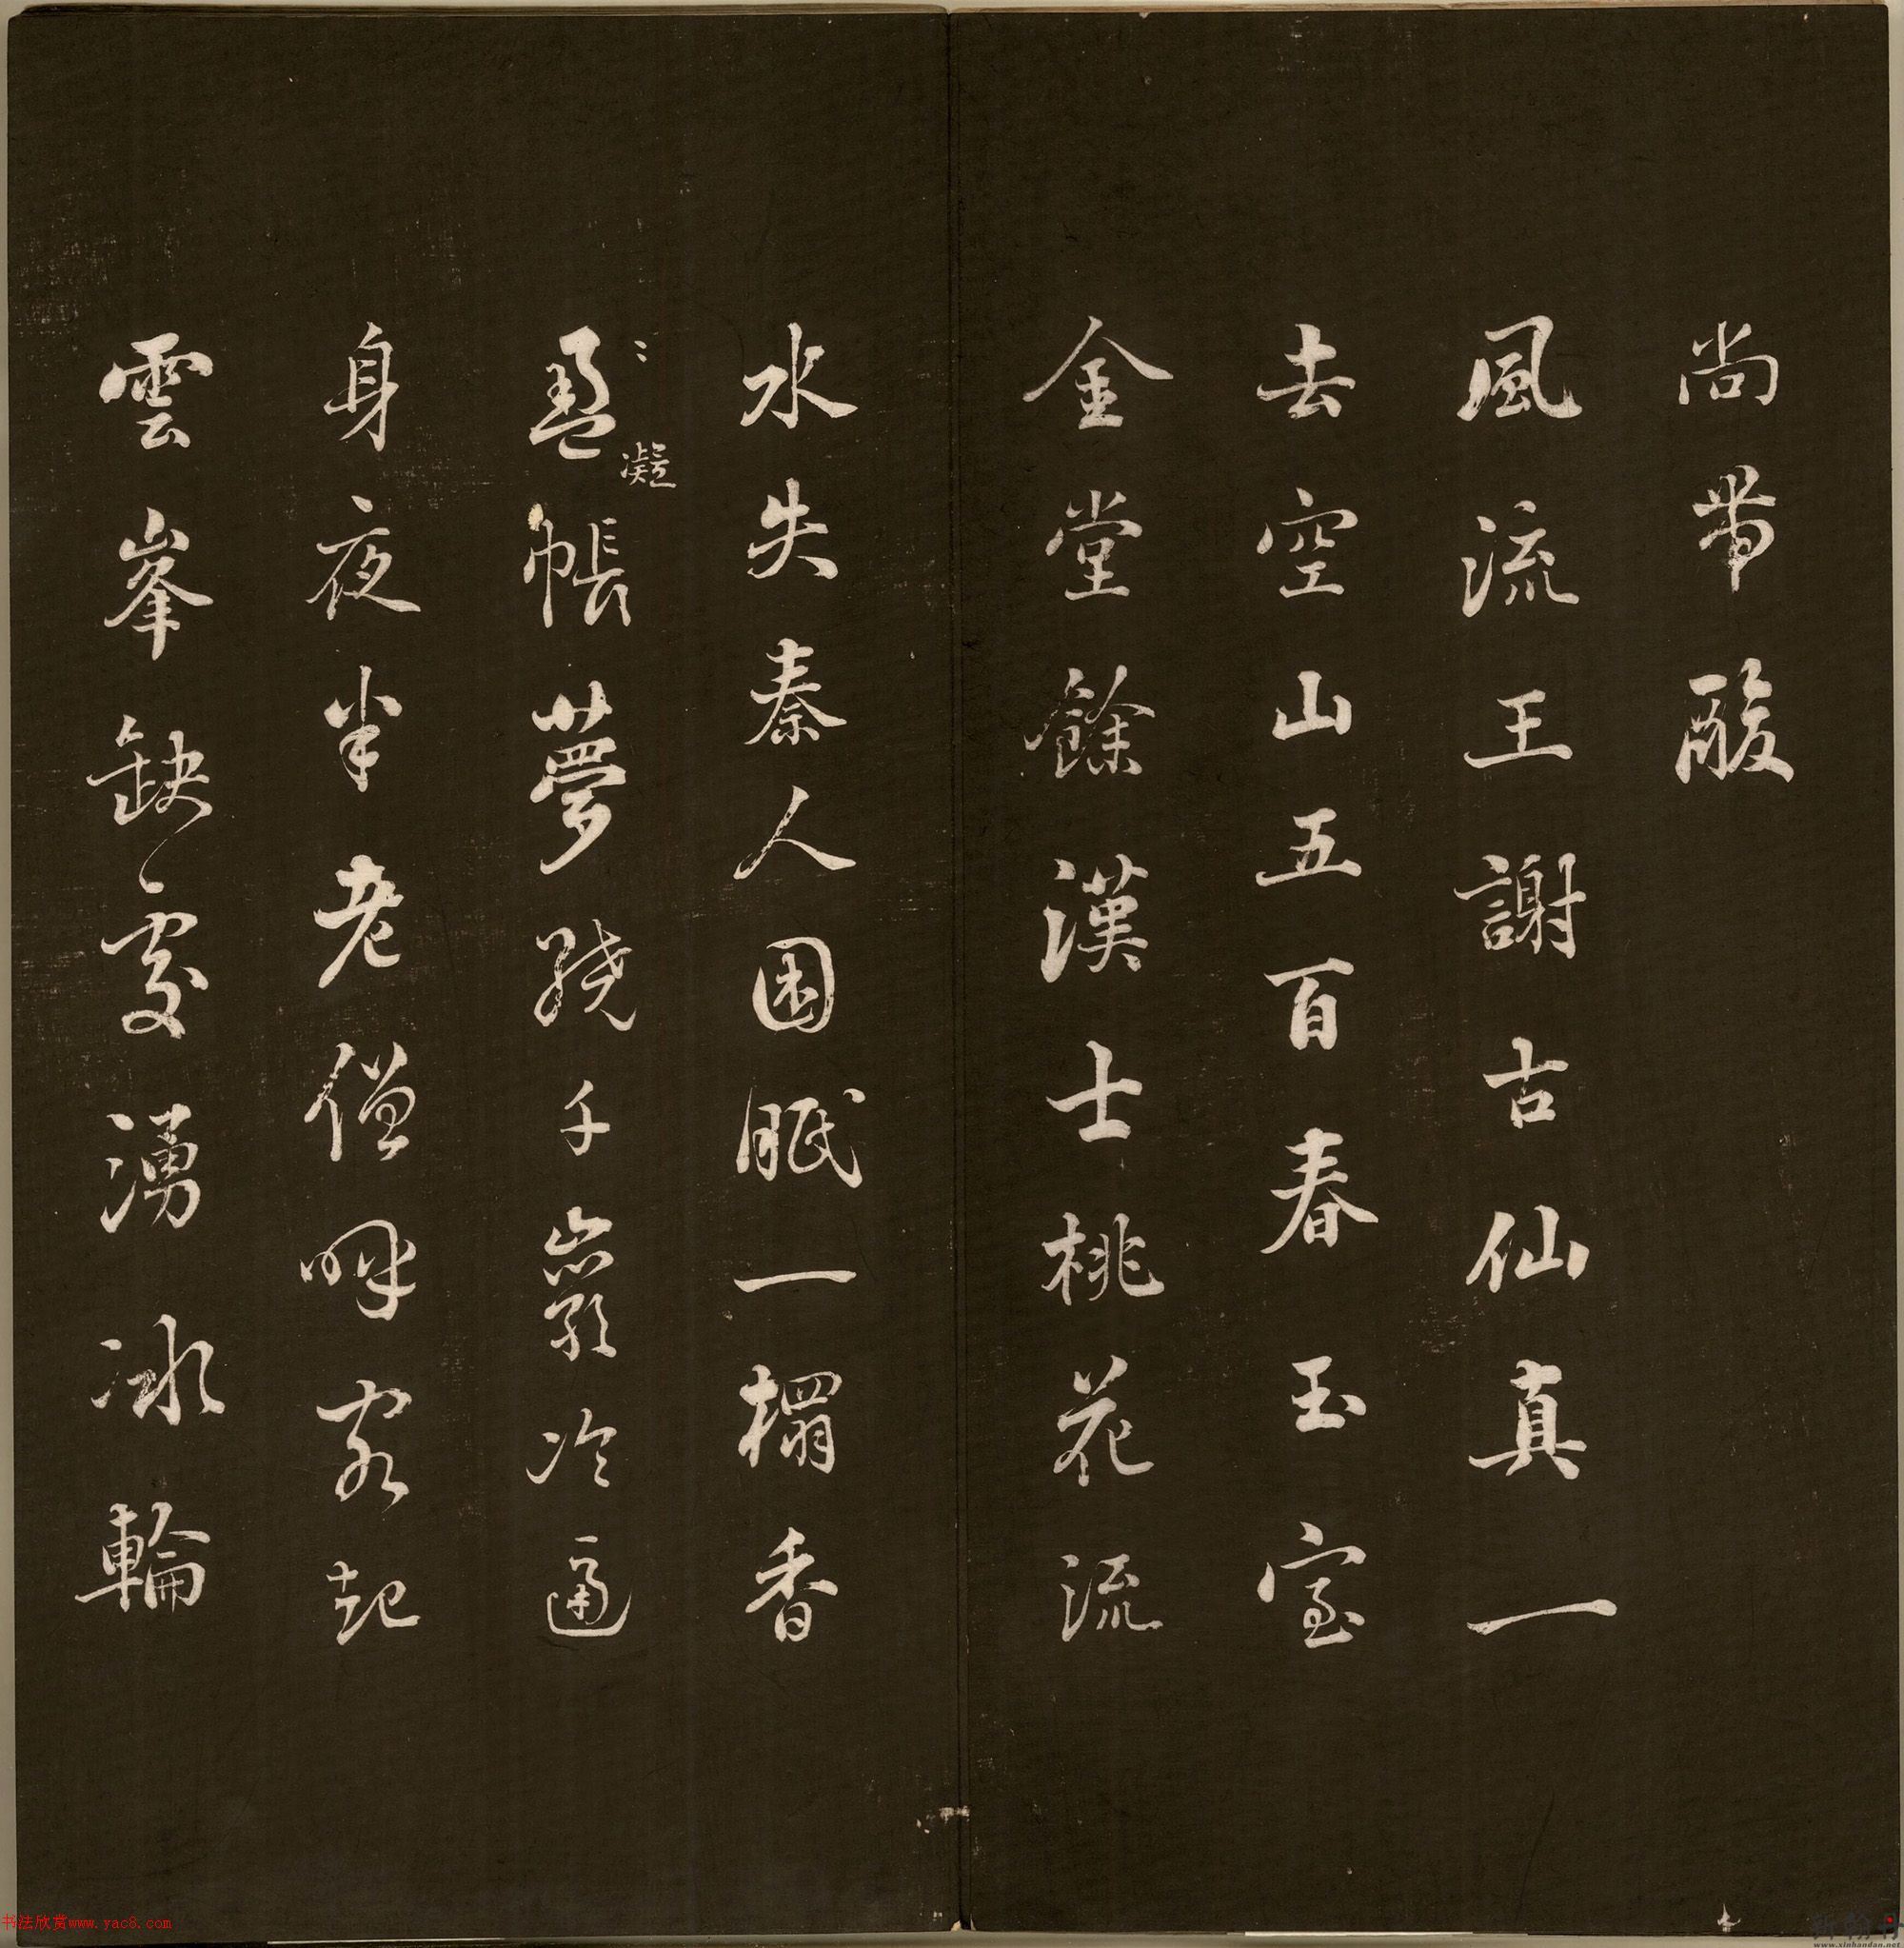 尚帶酸
風流王謝古仙真一
去空山五百春玉室
金堂餘漢士桃花流
水失秦人困眠一榻香
盈凝帳夢繞千巖冷逼
身夜半老僧呼客起
雲峯缺處湧冰輪
书法欣赏www.yac8.com
www.xinhandan.net